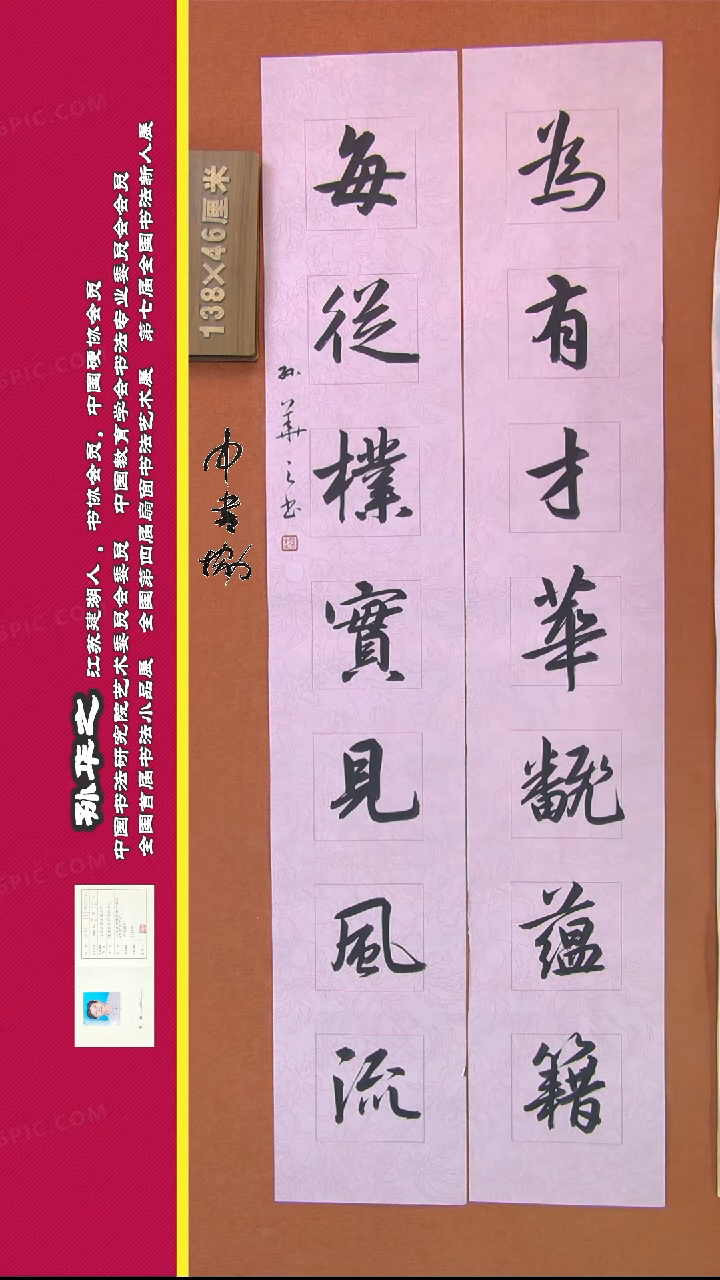 為有才華飜蘊籍
每從樸實見風流
孙華之书
138×46厘米
中书協
孙华之 江苏建湖人，书协会员，中国硬协会员
中国书法研究院艺术委员会委员 中国教育学会书法专业委员会会员
全国首届书法小品展 全国第四届扇面书法艺术展 第七届全国书法新人展